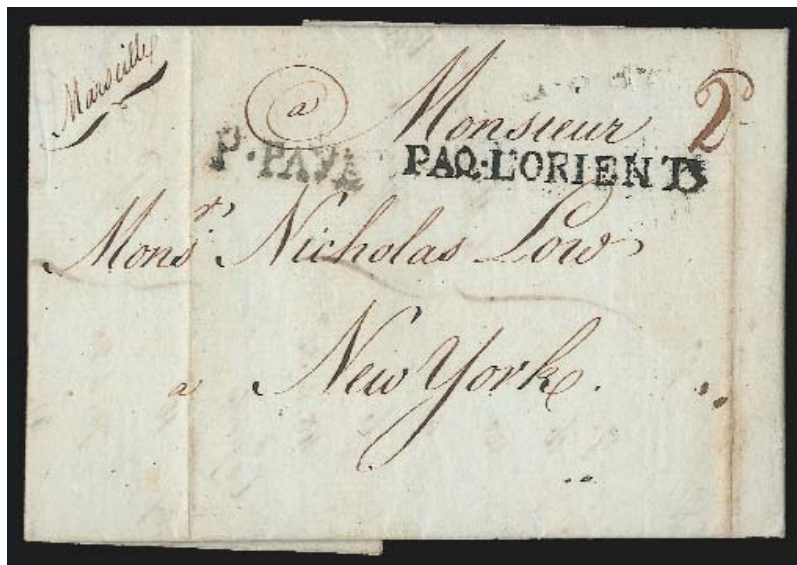 Marseille
a Monsieur 2
P·PAYÉ PAQ·L'ORIENT
Monsʳ. Nicholas Low
a New York.